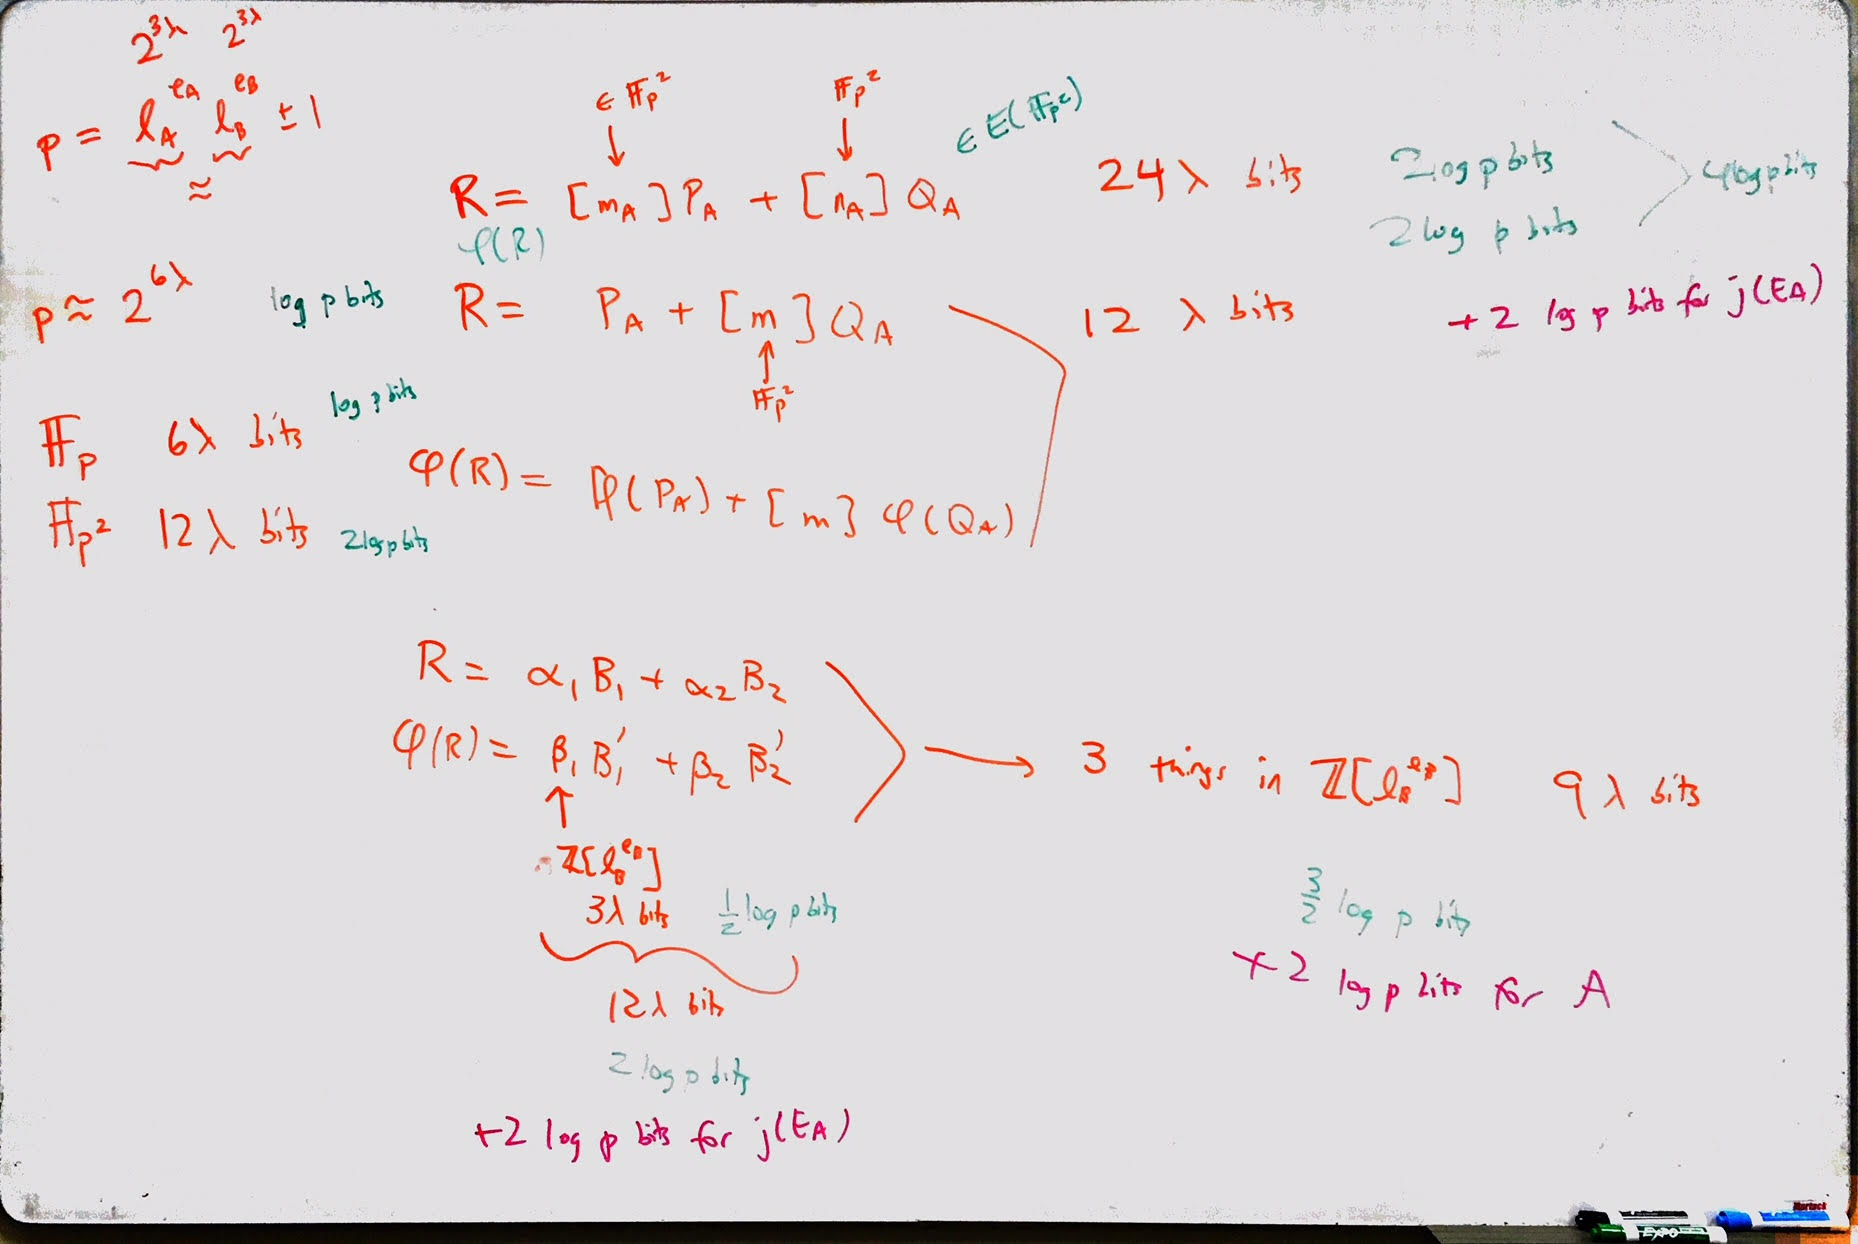 2^{3λ} 2^{3λ}
p = l_A^{e_A} l_B^{e_B} ± 1
≈
p ≈ 2^{6λ} log p bits
𝔽_p 6λ bits log p bits
𝔽_{p²} 12λ bits 2 log p bits
∈ 𝔽_{p²} 𝔽_{p²} ∈ E(𝔽_{p²})
↓ ↓
R = [m_A] P_A + [n_A] Q_A 24 λ bits
φ(R)
2 log p bits
2 log p bits
4 log p bits
R = P_A + [m] Q_A 12 λ bits
+ 2 log p bits for j(E_A)
↑
𝔽_{p²}
φ(R) = φ(P_A) + [m] φ(Q_A)
R = α₁ B₁ + α₂ B₂
φ(R) = β₁ B₁' + β₂ B₂' → 3 things in ℤ[l_B^{e_B}] 9 λ bits
↑
ℤ[l_B^{e_B}]
3λ bits ½ log p bits
12λ bits
2 log p bits
+2 log p bits for j(E_A)
3/2 log p bits
+ 2 log p bits for A
EXPO